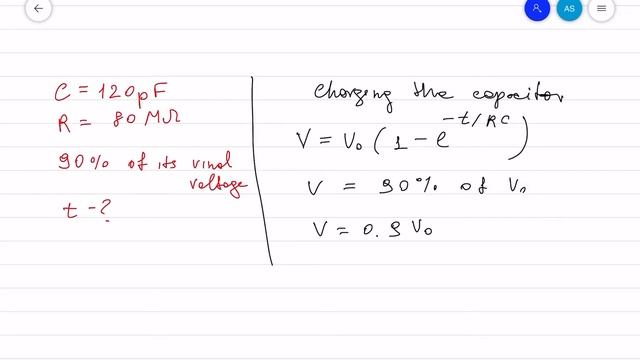 AS
C = 120pF
R = 80 MΩ
90% of its vinal
voltage
t - ?
Charging the capacitor
V = V₀ ( 1 - e^{-t/RC} )
V = 90% of V₀
V = 0.9 V₀